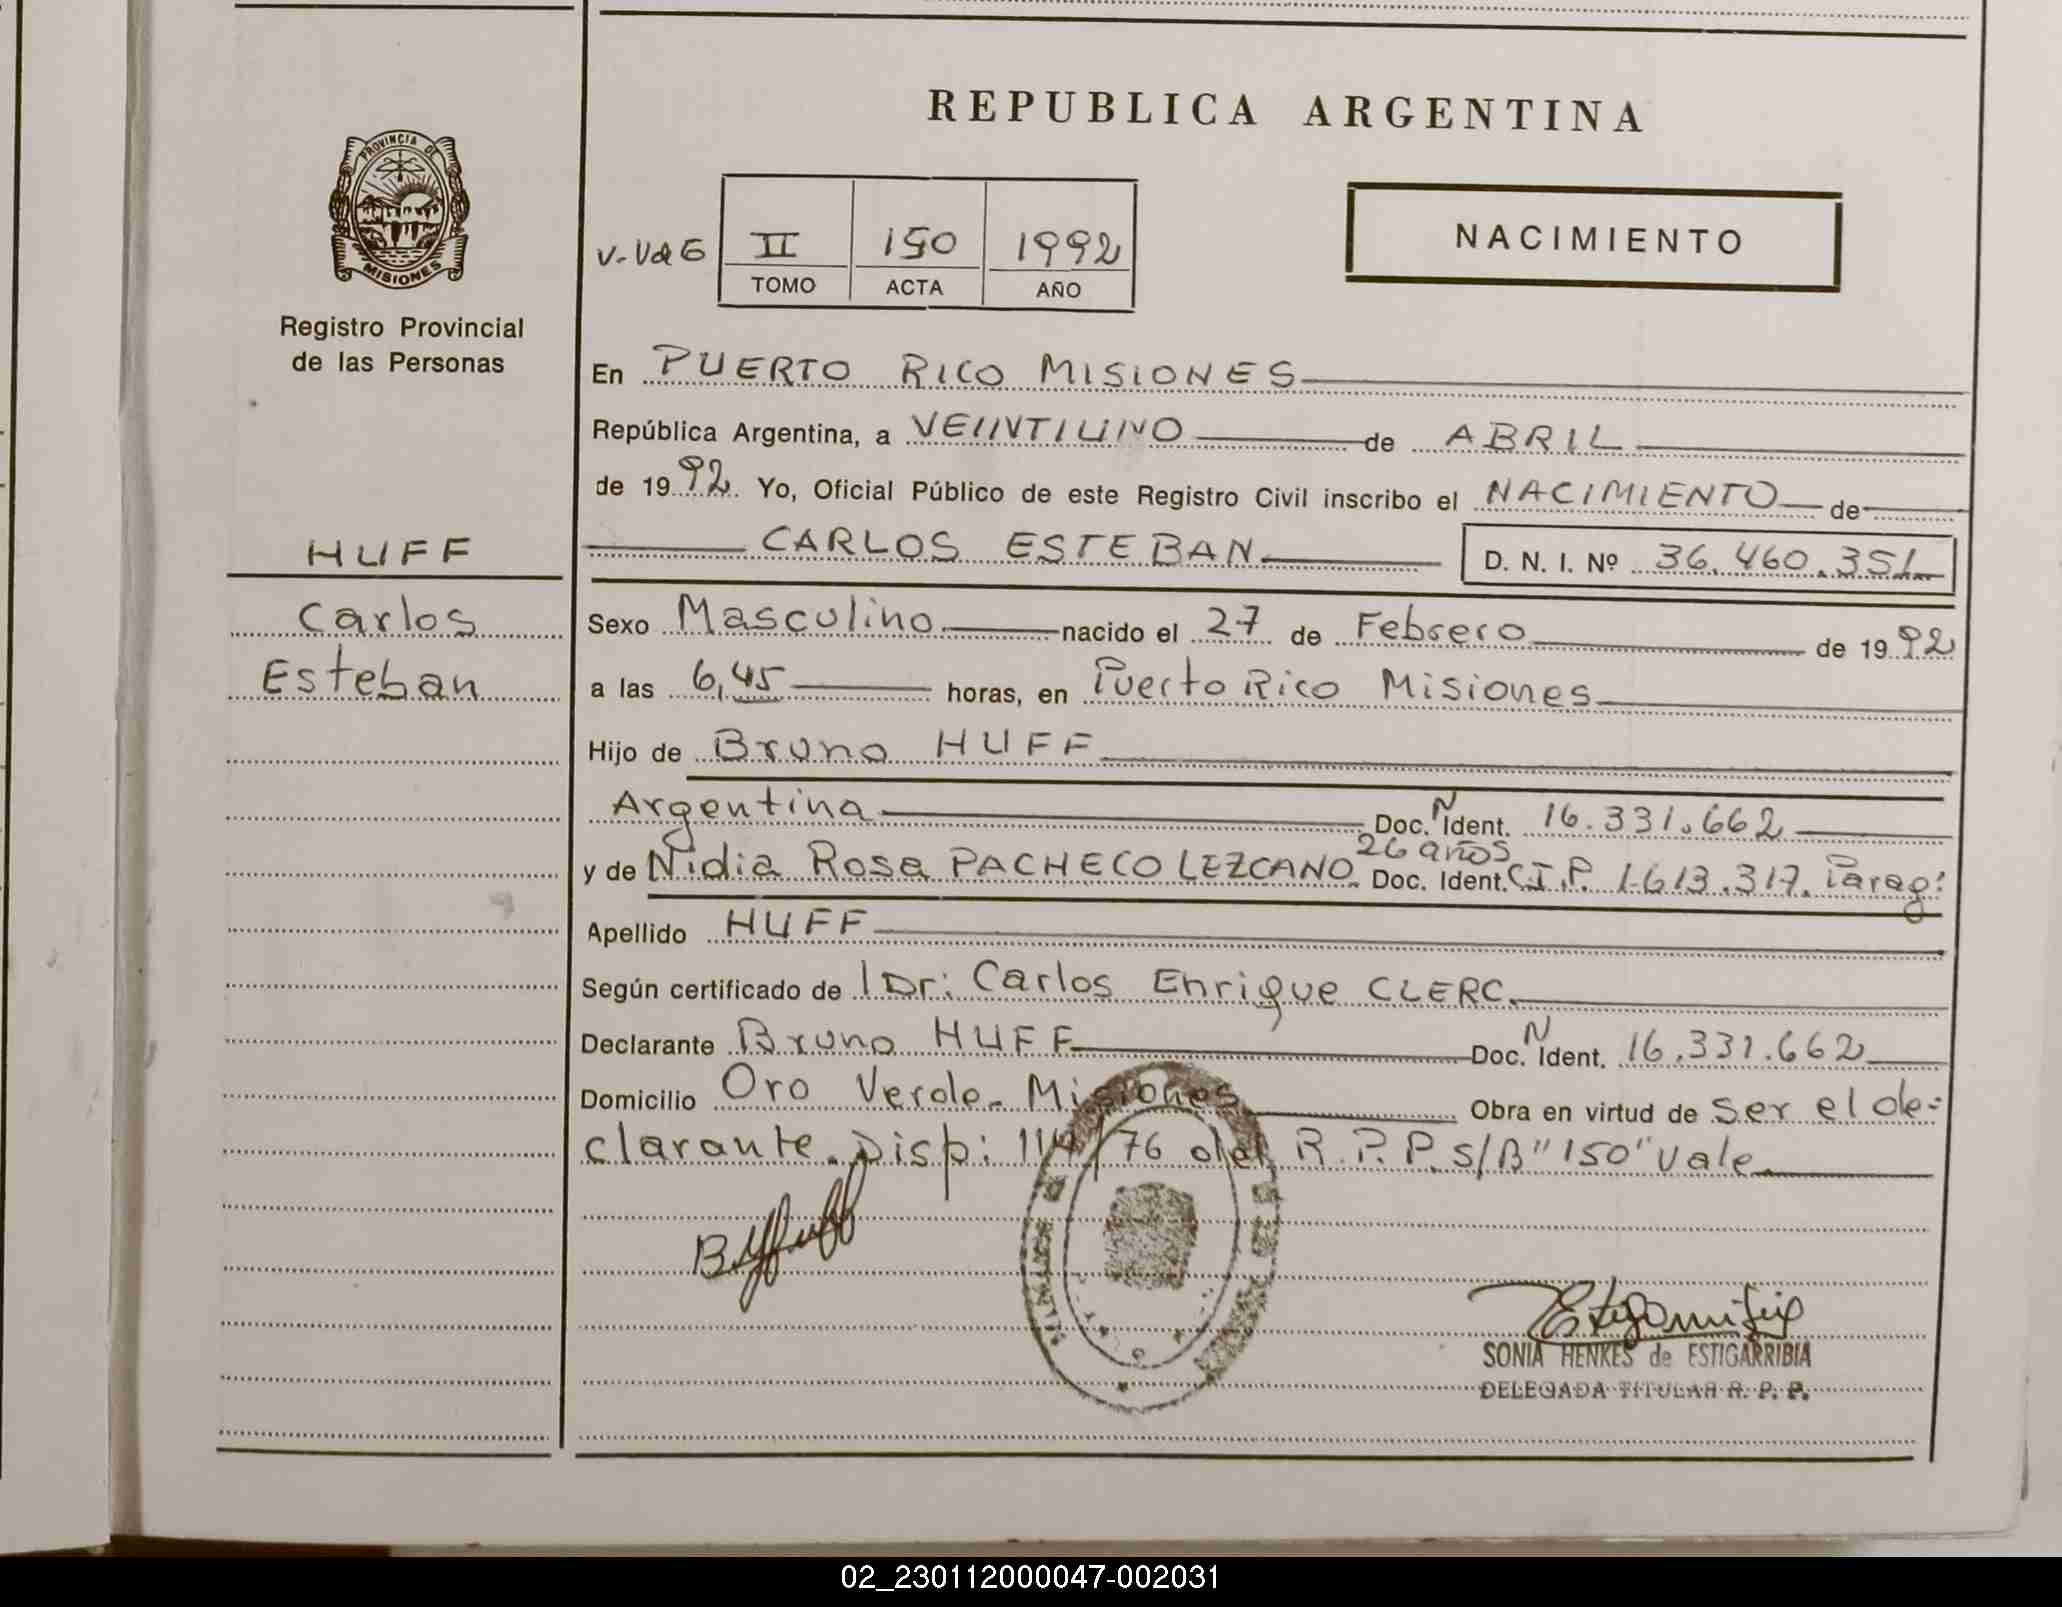 REPUBLICA ARGENTINA
PROVINCIA DE
MISIONES
Registro Provincial
de las Personas
HUFF
Carlos
Esteban
II 150 1992
TOMO ACTA AÑO
NACIMIENTO
En PUERTO RICO MISIONES
República Argentina, a VEINTIUNO de ABRIL
de 1992 Yo, Oficial Público de este Registro Civil inscribo el NACIMIENTO de
CARLOS ESTEBAN D. N. I. Nº 36.460.351
Sexo Masculino nacido el 27 de Febrero de 1992
a las 6,45 horas, en Puerto Rico Misiones
Hijo de Bruno HUFF
Argentina Doc. N Ident. 16.331.662
26 años
y de Nidia Rosa PACHECO LEZCANO Doc. Ident. C.I.P. 1.613.317. Parag:
Apellido HUFF
Según certificado de l Dr: Carlos Enrique CLERC.
Declarante Bruno HUFF Doc. N Ident. 16.331.662
Domicilio Oro Verde. Misiones Obra en virtud de ser el de=
clarante. Disp: /76 del R.P.P. s/B "150" Vale
SONIA HENKES de ESTIGARRIBIA
DELEGADA TITULAR R. P. P.
02_230112000047-002031